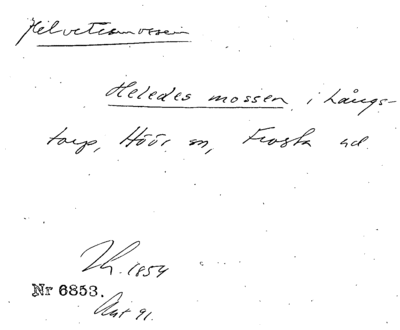 Helvetesmossen
Heledes mossen i Långs-
torp, Höör sn, Frosta hd.
1854
Nr 6853.
91.